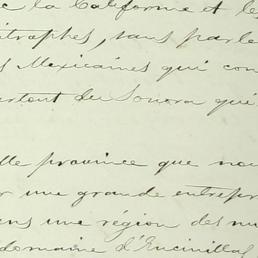 la Californie et le
itrophes, sans parle
s Mexicaines qui con
artout du Sonora qui
lle province que nou
r une grande entrepr
ens une région des mi
domaine d'Encinillas